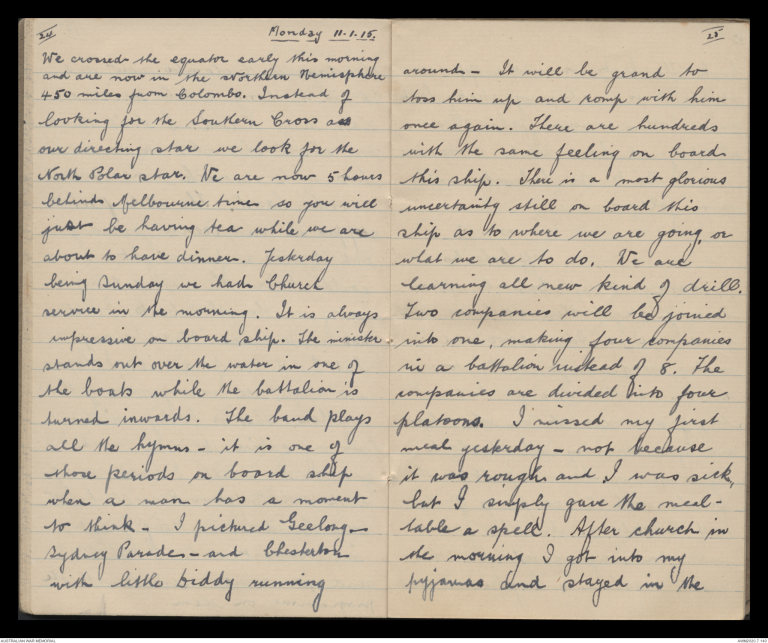 24
Monday 11.1.15.
We crossed the equator early this morning
and are now in the Northern Hemisphere
450 miles from Colombo. Instead of
looking for the Southern Cross as
our directing star we look for the
North Polar star. We are now 5 hours
behind Melbourne time so you will
just be having tea while we are
about to have dinner. Yesterday
being Sunday we had Church
service in the morning. It is always
impressive on board ship. The minister
stands out over the water in one of
the boats while the battalion is
turned inwards. The band plays
all the hymns - it is one of
those periods on board ship
when a man has a moment
to think - I pictured Geelong -
Sydney Parade - and Chesterton
with little biddy running
25
around - It will be grand to
toss him up and romp with him
once again. There are hundreds
with the same feeling on board
this ship. There is a most glorious
uncertainty still on board this
ship as to where we are going, or
what we are to do. We are
learning all new kind of drill.
Two companies will be joined
into one, making four companies
in a battalion instead of 8. The
companies are divided into four
platoons. I missed my first
meal yesterday - not because
it was rough and I was sick,
but I simply gave the meal-
table a spell. After church in
the morning I got into my
pyjamas and stayed in the
AUSTRALIAN WAR MEMORIAL